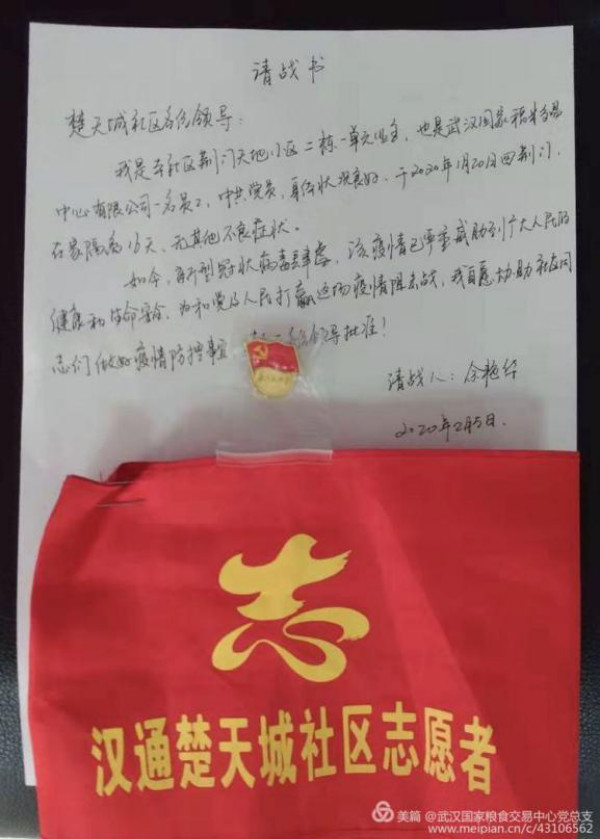 请战书
楚天城社区各位领导：
我是本社区荆门天地小区二栋一单元业主，也是武汉国家粮食交易
中心有限公司一名员工，中共党员，身体状况良好，于2020年1月20日回荆门，
在家隔离16天，无其他不良症状。
如今，新型冠状病毒肆虐，该疫情已严重威胁到广大人民的
健康和生命安全，为和党及人民打赢这场疫情阻击战，我自愿协助社区同
志们做好疫情防控事宜 领导批准！
请战人：余艳华
2020年2月5日.
志
汉通楚天城社区志愿者
美篇 @武汉国家粮食交易中心党总支
www.meipian.cn/c/43106562